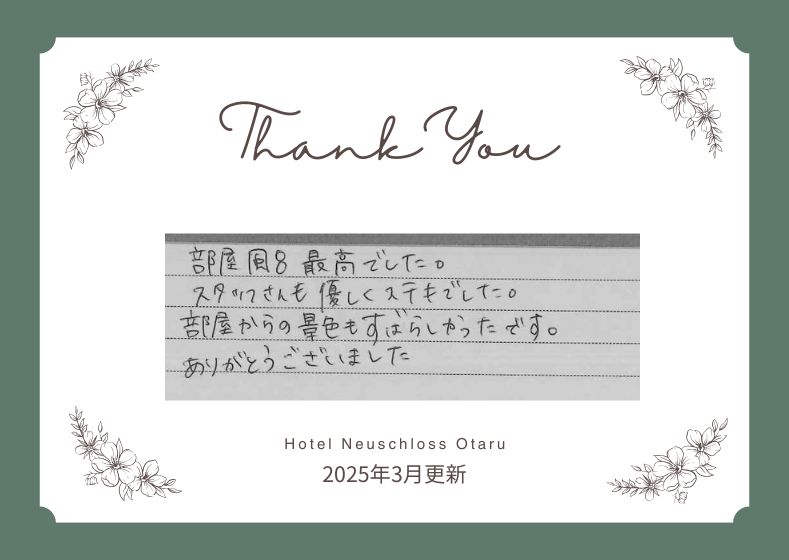 Thank You
部屋風呂 最高でした。
スタッフさんも優しくステキでした。
部屋からの景色もすばらしかったです。
ありがとうございました
Hotel Neuschloss Otaru
2025年3月更新